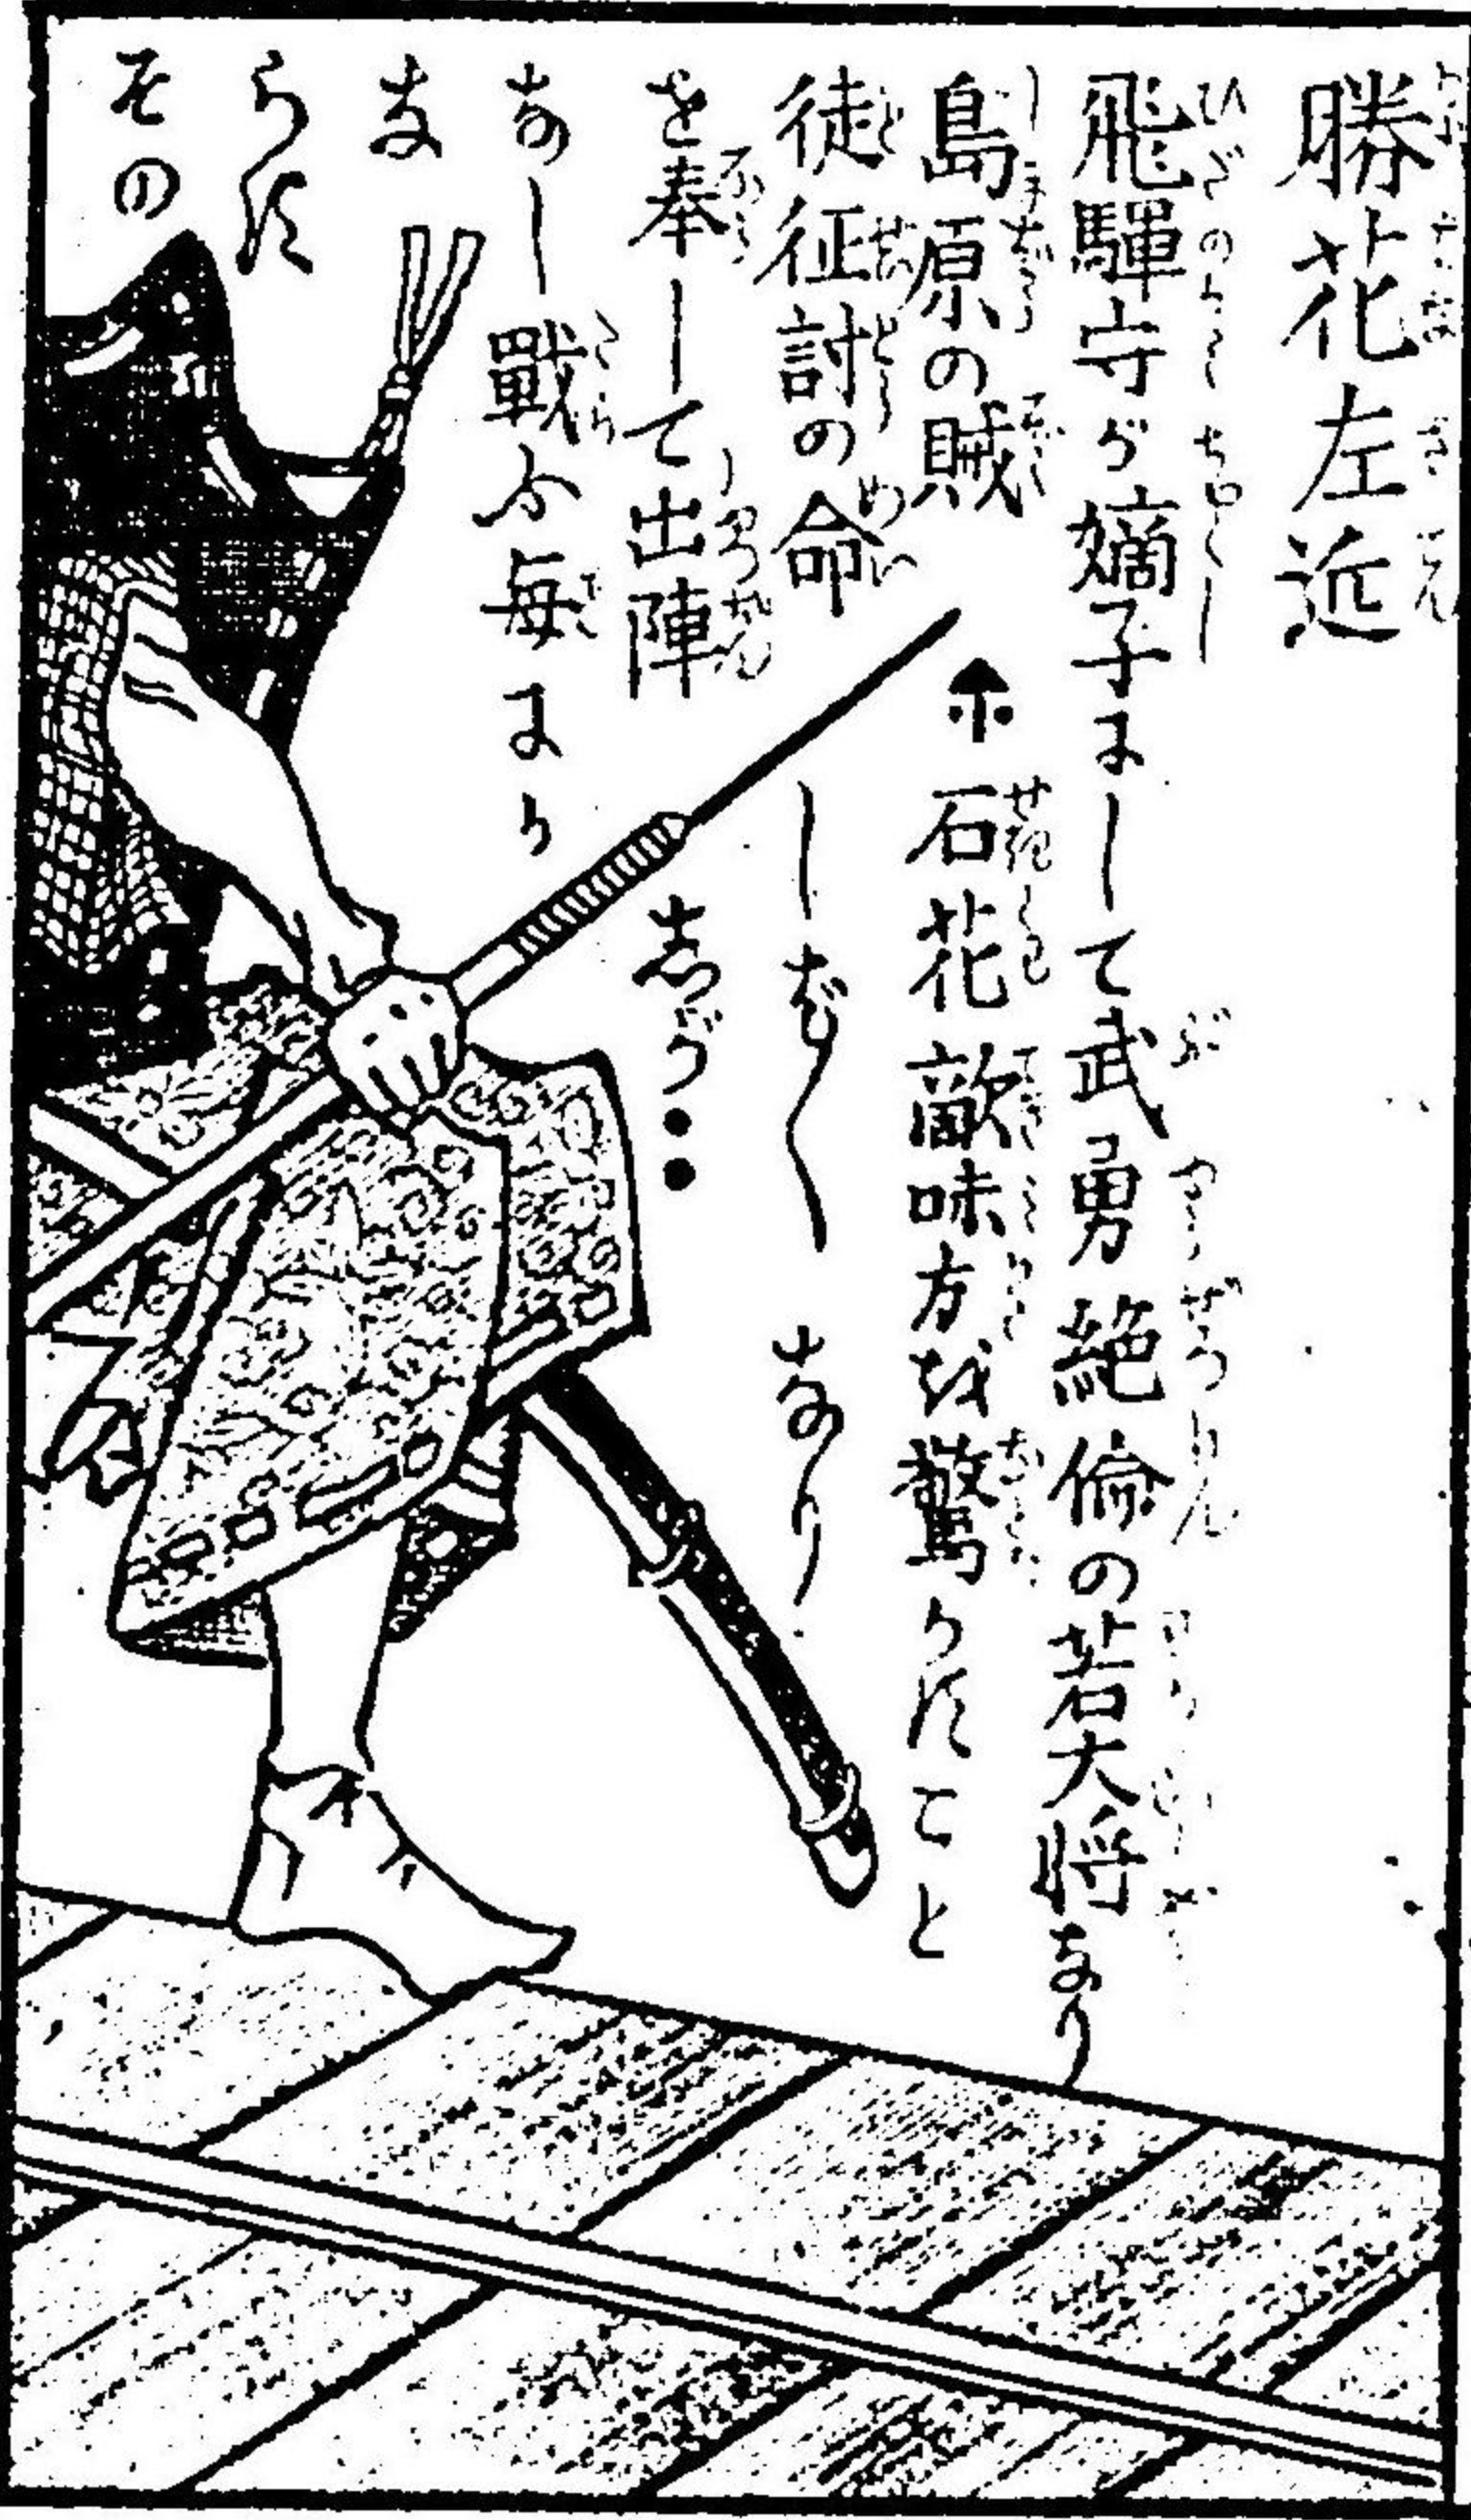 勝花左近
飛騨守が嫡子にして武勇絶倫の若大将なり
島原の賊
徒征討の命
を奉して出陣
なし戰ふ毎にか
な
らす
その
石花敵味方を驚かすこと
しば〱なり
志が